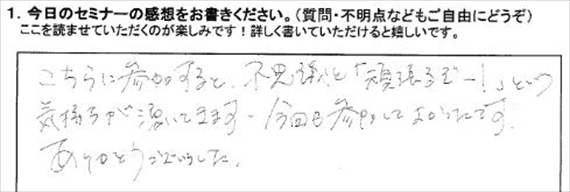 1. 今日のセミナーの感想をお書きください。(質問・不明点などもご自由にどうぞ)
ここを読ませていただくのが楽しみです!詳しく書いていただけると嬉しいです。
こちらに参加すると、不思議と「頑張るぞー!」という
気持ちが湧いてきます。今回も参加してよかったです。
ありがとうございました。